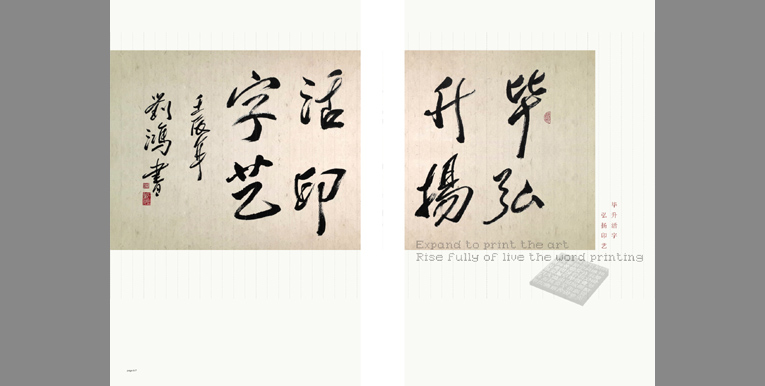 毕升活字
弘揚印艺
壬辰年
劉鴻書
毕升活字
弘扬印艺
Expand to print the art
Rise fully of live the word printing